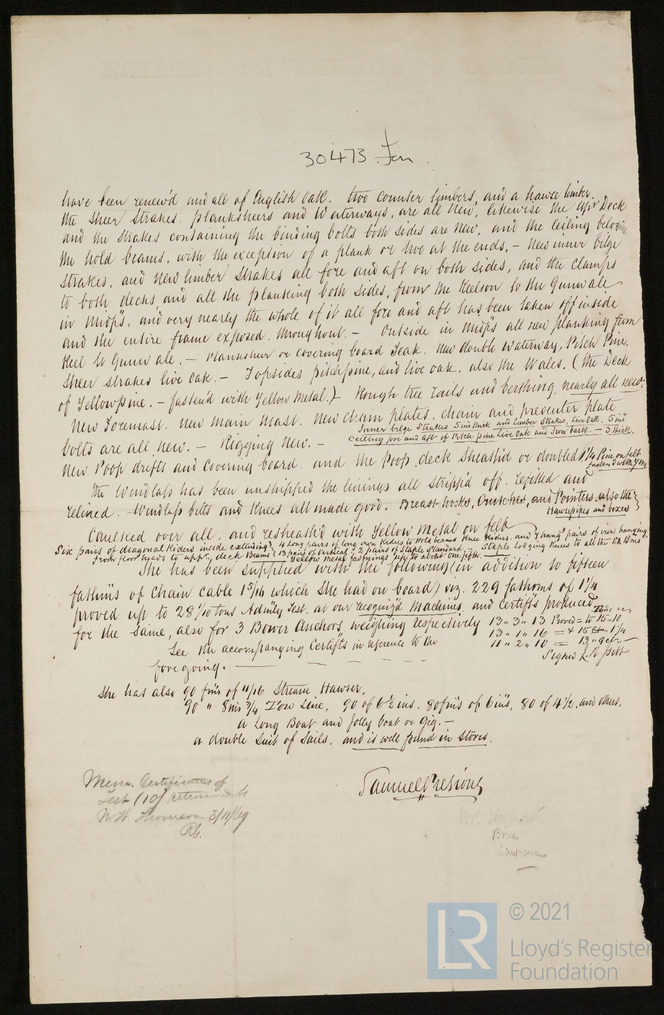 30473 Iron
have been renew'd and all of English Oak. two counter timbers, and a hawse timber.
the Sheer Strakes. planksheers and Waterways, are all New, likewise the upr Deck
and the strakes containing the binding bolts both sides are New, and the ceiling below
the hold beams, with the exception of a plank or two at the ends, - New inner bilge
strakes, and New limber strakes all fore and aft on both sides, and the clamps
to both decks, and all the planking both sides, from the Keelson to the Gunwale
in Midps, and very nearly the whole of it all fore and aft has been taken off inside
and the entire frame exposed throughout. - Outside in Midps all new planking from
Keel to Gunwale. - Planksheer or covering board Teak. New double Waterway, Pitch Pine.
Sheer strakes live oak. - Topsides pitchpine, and live oak, also the Wales. (the Deck
of Yellow pine. - fasten'd with Yellow Metal.) Rough tree rails and berthing, nearly all new.
New Foremast. New main Mast. New chain plates. chain and preventer plate
bolts are all new. - Rigging New. -
Inner bilge Strakes 5 ins thick and Limber Strakes, live Oak, 5 ins
Ceiling fore and aft of Pitch pine live Oak and - 3 thick.
New Poop drifts and Covering board and the Poop deck Sheath'd or doubled 1 1/4 Pine on felt
The Windlass has been unshipped the linings all stripp'd off. Refitted and
relined. - Windlass bitts and Knees all made good. Breast hooks, Crutches, and Pointers, also the
Hawsepipes and boxes
Caulked over all, and resheath'd with Yellow Metal on felt
Six pairs of diagonal Riders inside ceiling 4 Long pairs of long iron Riders to Hold beams Knee Riders. and hang pairs of iron hanging,
Iron floor heads to uppr deck Beams 13 pairs of Vertical & 2 pairs of Staple Standard Staple Lodging Knees to all the Dk Bms
Yellow Metal fastenings up to about one fifth
She has been supplied with the following (in addition to fifteen
fathms of Chain Cable 1 5/16 which she had on board) viz. 229 fathoms of 1 1/4
proved up to 28 1/10 tons Admlty Test, at our recogniz'd Machines, and Certifts produced
for the same, also for 3 Bower Anchors, weighing respectively 13 " 3 " 13 Proved = to 15-10
13 " 1 " 16 =
11 " 2 " 10 =
See the accompanying Certifts in reference to the
foregoing.
She has also 90 fms of 11/16 Stream Hawser,
90 " 8 ins 3/4 Tow Line, 90 of 6 1/2 ins. 80 fms of 6 ins, 80 of 4 1/2, and others.
a Long Boat and jolly boat or Gig. -
a double Suit of Sails, and is well found in Stores.
Samuel Presious
Mem. Certificates of
Test (10) returned to
W. H. Thomson 3/11/69
© 2021
LR
Lloyd's Register
Foundation